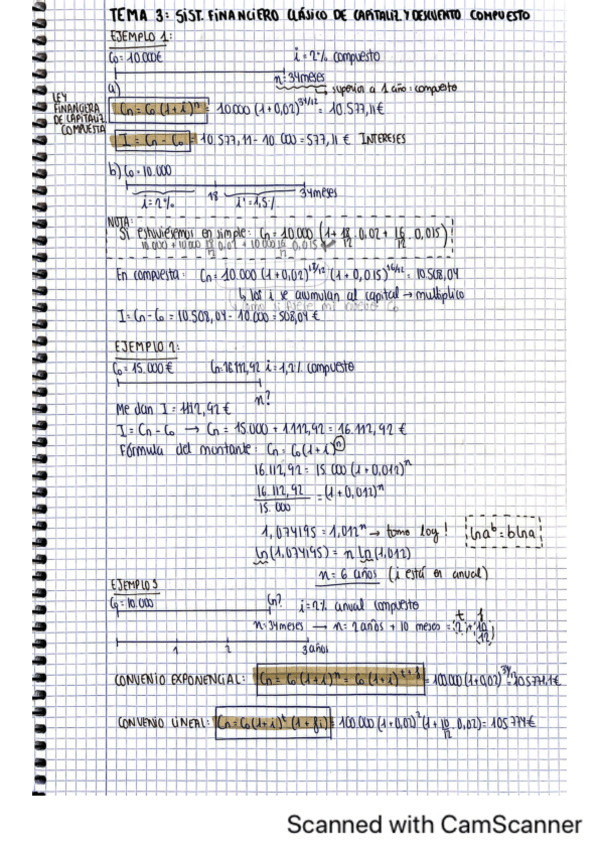 TEMA 3: SIST. FINANCIERO CLÁSICO DE CAPITALIZ. Y DESCUENTO COMPUESTO
EJEMPLO 1:
C₀ = 10.000€ i = 2% compuesto
n = 34 meses
a) ↳ superior a 1 año: compuesto
LEY FINANCIERA DE CAPITALIZ. COMPUESTA
Cn = C₀ (1+i)ⁿ = 10.000 (1+0,02)^34/12 = 10.577,11€
I = Cn - C₀ = 10.577,11 - 10.000 = 577,11 € INTERESES
b) C₀ = 10.000
18 34 meses
i = 2% i' = 1,5%
NOTA:
Si estuviésemos en simple: Cn = 10.000 (1 + 18/12 · 0,02 + 16/12 · 0,015)
En compuesta: Cn = 10.000 (1+0,02)^18/12 (1+0,015)^16/12 = 10.508,04
↳ los i se acumulan al capital → multiplico
I = Cn - C₀ = 10.508,04 - 10.000 = 508,04 €
EJEMPLO 2:
C₀ = 15.000 € Cn = 16.112,92 i = 1,2% compuesto
n?
Me dan I = 1112,92 €
I = Cn - C₀ → Cn = 15.000 + 1.112,92 = 16.112,92 €
Fórmula del montante: Cn = C₀ (1+i)ⁿ
16.112,92 = 15.000 (1+0,012)ⁿ
16.112,92 / 15.000 = (1+0,012)ⁿ
1,074195 = 1,012ⁿ → tomo log! ln aᵇ = b ln a
ln (1,074195) = n ln (1,012)
n = 6 años (i está en anual)
EJEMPLO 3
C₀ = 10.000 Cn? i = 2% anual compuesto
n = 34 meses → n = 2 años + 10 meses = (2 + 10/12)
t f
1 2 3 años
CONVENIO EXPONENCIAL: Cn = C₀ (1+i)ⁿ = C₀ (1+i)^t+f = 100.000 (1+0,02)^34/12
CONVENIO LINEAL: Cn = C₀ (1+i)^t (1+fi) = 100.000 (1+0,02)² (1 + 10/12 · 0,02) = 105.774€
Scanned with CamScanner